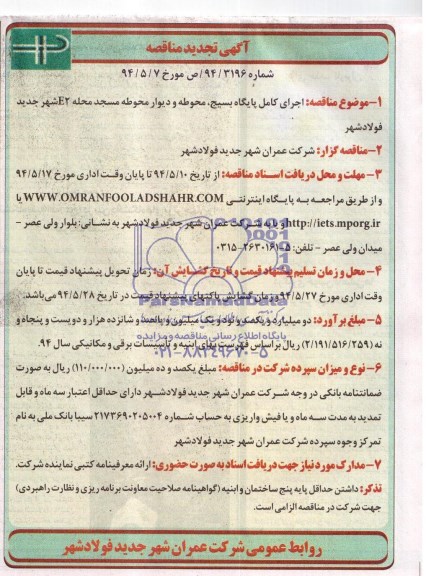 آگهی تجدید مناقصه
شماره ۹۴/۳۱۹۶/ص مورخ ۹۴/۵/۷
۱-موضوع مناقصه: اجرای کامل پایگاه بسیج، محوطه و دیوار محوطه مسجد محله E۲شهر جدید
فولادشهر
۲-مناقصه گزار: شرکت عمران شهر جدید فولادشهر
۳- مهلت و محل دریافت اسناد مناقصه: از تاریخ ۹۴/۵/۱۰ تا پایان وقت اداری مورخ ۹۴/۵/۱۷
و از طریق مراجعه به پایگاه اینترنتی WWW.OMRANFOOLADSHAHR.COM یا
http://iets.mporg.ir و یا به شرکت عمران شهر جدید فولادشهر به نشانی: بلوار ولی عصر -
میدان ولی عصر - تلفن: ۵-۲۶۳۰۱۶۱-۰۳۱۵
۴- محل و زمان تسلیم پیشنهاد قیمت و تاریخ گشایش آن: زمان تحویل پیشنهاد قیمت تا پایان
وقت اداری مورخ ۹۴/۵/۲۷ زمان گشایش پاکتهای پیشنهاد قیمت در تاریخ ۹۴/۵/۲۸ می‌باشد.
۵- مبلغ برآورد: دو میلیارد و یکصد و نود و یک میلیون و پانصد و شانزده هزار و دویست و پنجاه و
نه (۲/۱۹۱/۵۱۶/۲۵۹) ریال براساس فهرست بهای ابنیه و تاسیسات برقی و مکانیکی سال ۹۴.
۶- نوع و میزان سپرده شرکت در مناقصه: مبلغ یکصد و ده میلیون (۱۱۰/۰۰۰/۰۰۰) ریال به صورت
ضمانتنامه بانکی در وجه شرکت عمران شهر جدید فولادشهر دارای حداقل اعتبار سه ماه و قابل
تمدید به مدت سه ماه و یا فیش واریزی به حساب شماره ۲۱۷۳۶۹۰۲۰۵۰۰۴ سیبا بانک ملی به نام
تمرکز وجوه سپرده شرکت عمران شهر جدید فولادشهر
۷- مدارک مورد نیاز جهت دریافت اسناد به صورت حضوری: ارائه معرفینامه کتبی نماینده شرکت.
تذکر: داشتن حداقل پایه پنج ساختمان و ابنیه (گواهینامه صلاحیت معاونت برنامه ریزی و نظارت راهبردی)
جهت شرکت در مناقصه الزامی است.
روابط عمومی شرکت عمران شهر جدید فولادشهر
پایگاه اطلاع رسانی مناقصه و مزایده
۰۲۱-۸۸۳۴۹۶۷۰-۵